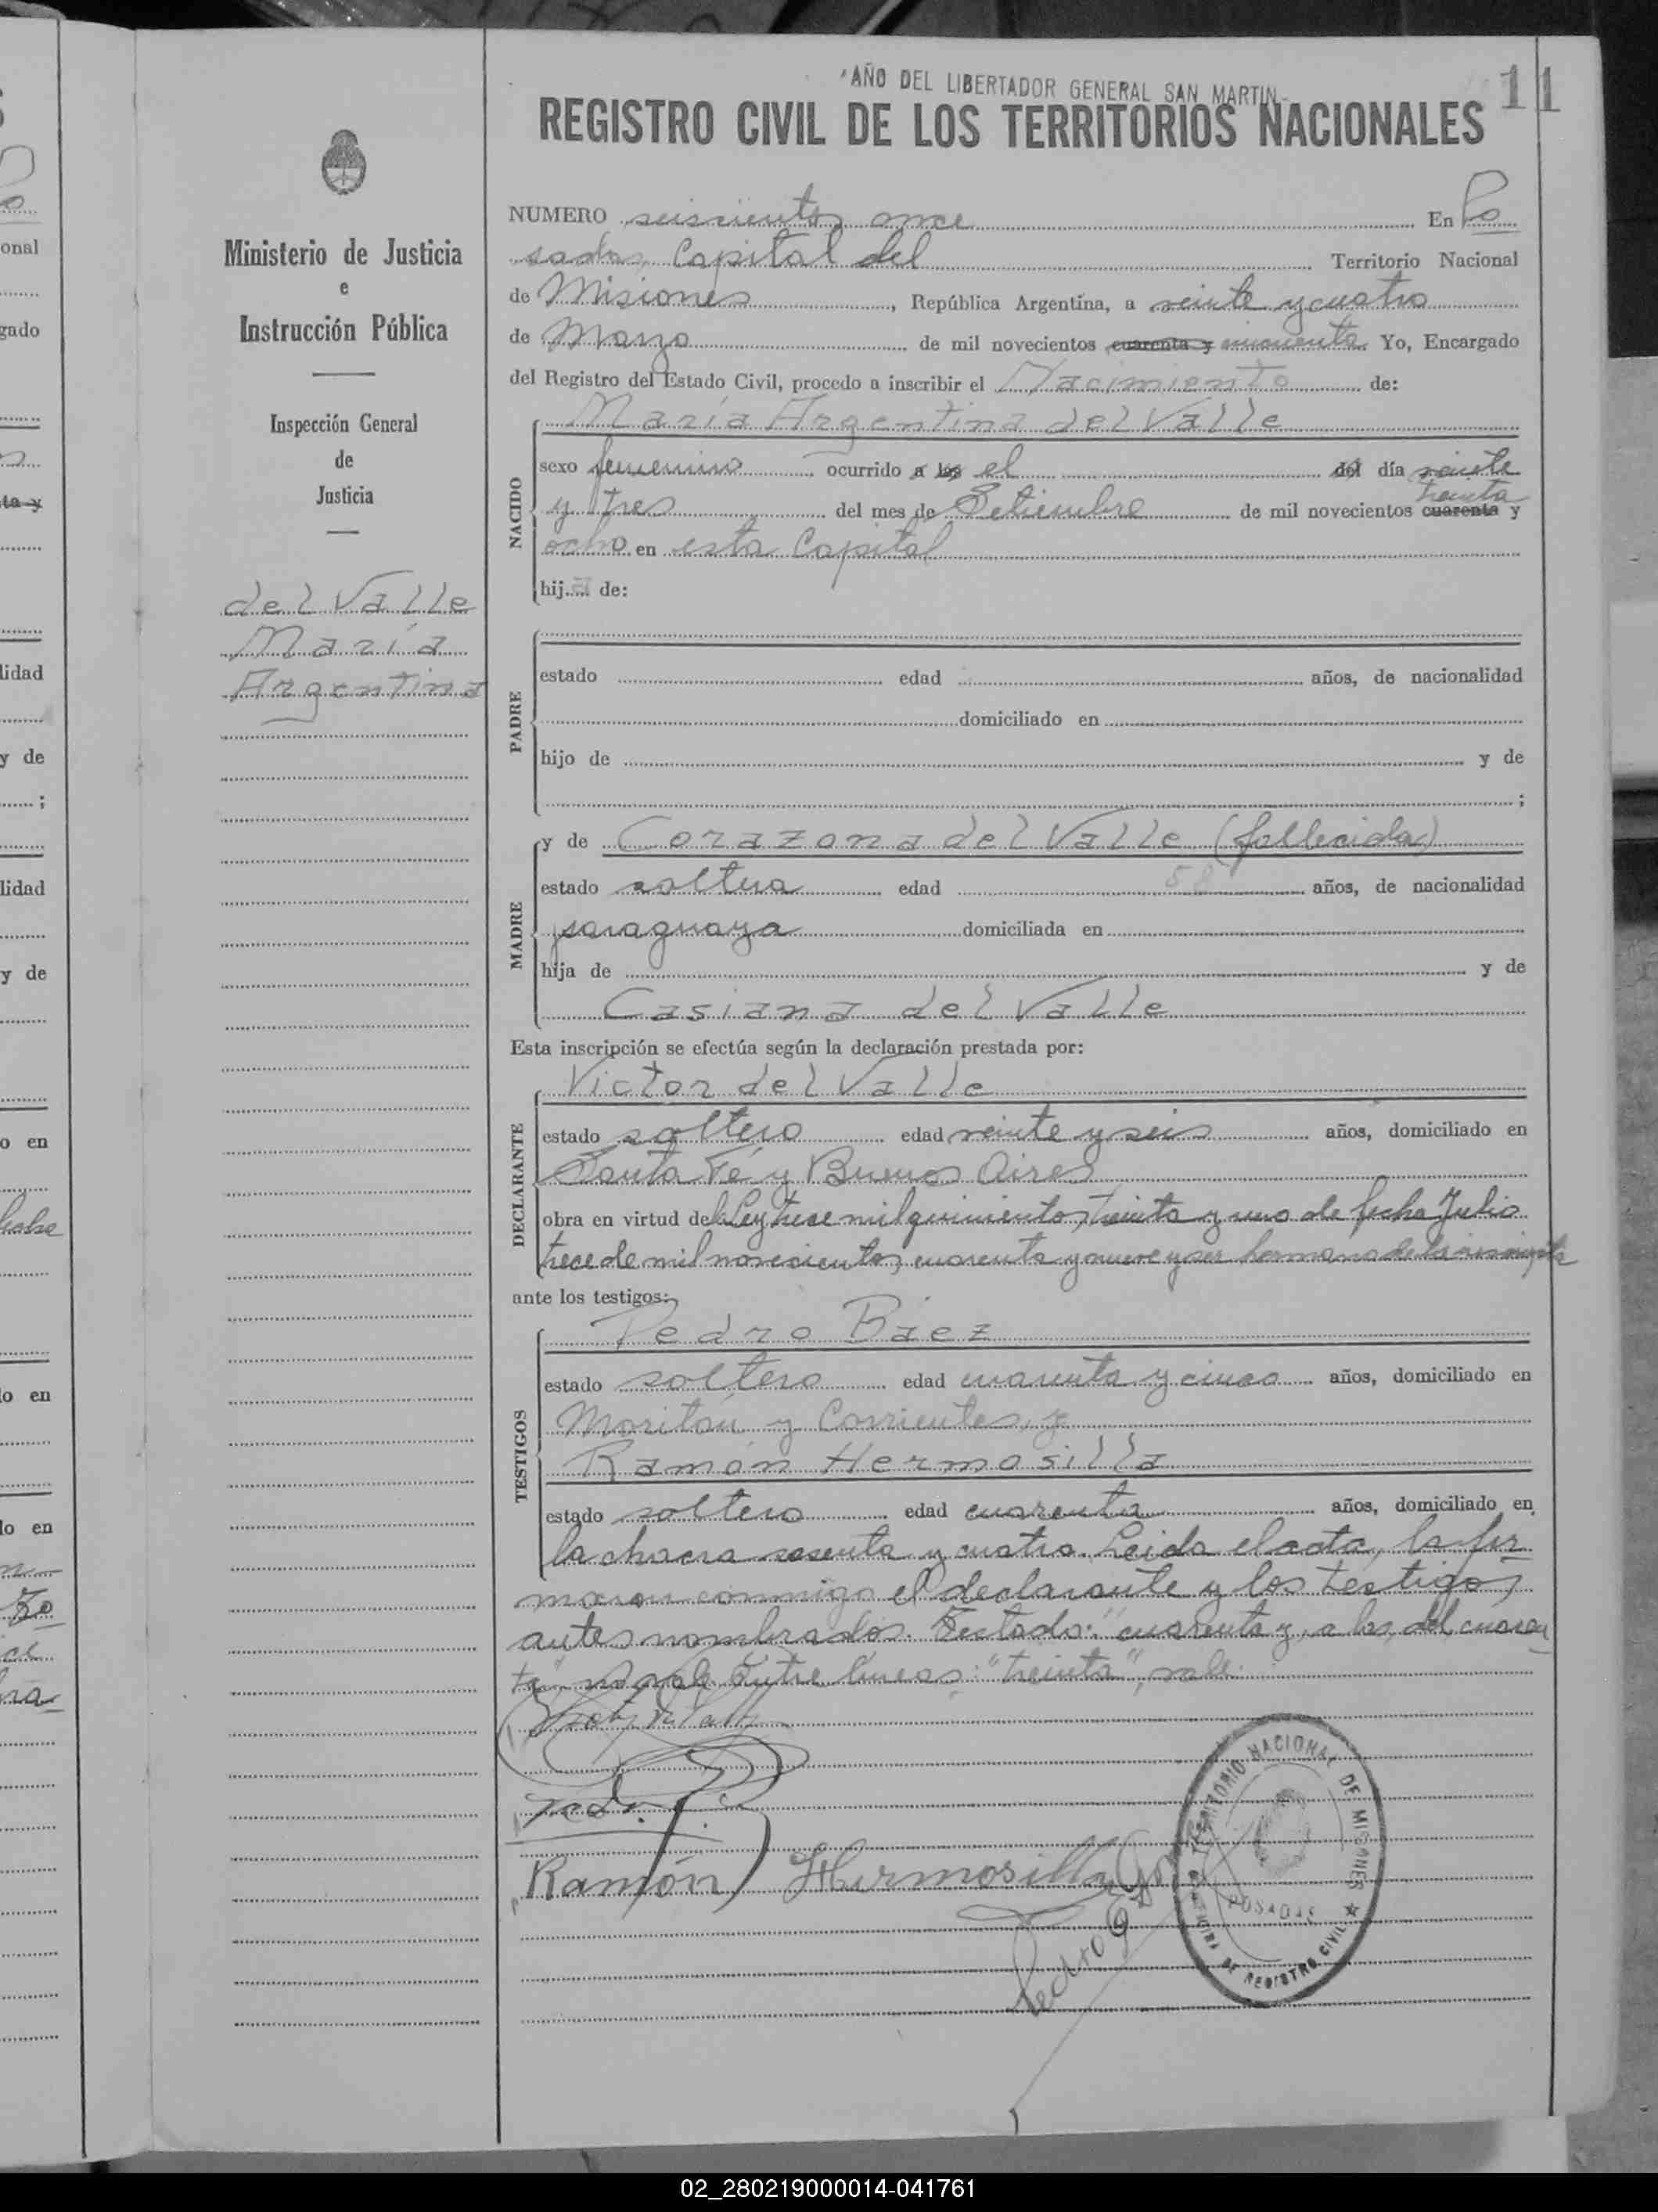 "AÑO DEL LIBERTADOR GENERAL SAN MARTIN"
11
REGISTRO CIVIL DE LOS TERRITORIOS NACIONALES
Ministerio de Justicia
e
Instrucción Pública
Inspección General
de
Justicia
del Valle
María
Argentina
NUMERO seiscientos once En Po
sadas, Capital del Territorio Nacional
de Misiones, República Argentina, a veinte y cuatro
de Marzo de mil novecientos cuarenta y cincuenta. Yo, Encargado
del Registro del Estado Civil, procedo a inscribir el Nacimiento de:
María Argentina del Valle
NACIDO
sexo femenino ocurrido a las el del día veinte
y tres del mes de Setiembre de mil novecientos cuarenta y
treinta
ocho en esta Capital
hija de:
PADRE
estado edad años, de nacionalidad
domiciliado en
hijo de y de
;
MADRE
y de Corazona del Valle (fallecida)
estado soltera edad 58 años, de nacionalidad
paraguaya domiciliada en
hija de y de
Casiana del Valle
Esta inscripción se efectúa según la declaración prestada por:
DECLARANTE
Victor del Valle
estado soltero edad veinte y seis años, domiciliado en
Santa Fé y Buenos Aires
obra en virtud de la Ley trece mil quinientos treinta y uno de fecha Julio
trece de mil novecientos cuarenta y nueve y ser hermano de la
ante los testigos:
TESTIGOS
Pedro Báez
estado soltero edad cuarenta y cinco años, domiciliado en
y Corrientes, y
Ramón Hermosilla
estado soltero edad cuarenta años, domiciliado en
la chacra sesenta y cuatro. Leida el acta, la fir
maron conmigo el declarante y los testigos
antes nombrados. Testado: "cuarenta y, a las, del, cuaren
ta" no vale. Entre lineas: "treinta", vale.
Ramón Hermosilla
Pedro
TERRITORIO NACIONAL DE MISIONES
POSADAS
OFICINA DE REGISTRO CIVIL
02_280219000014-041761